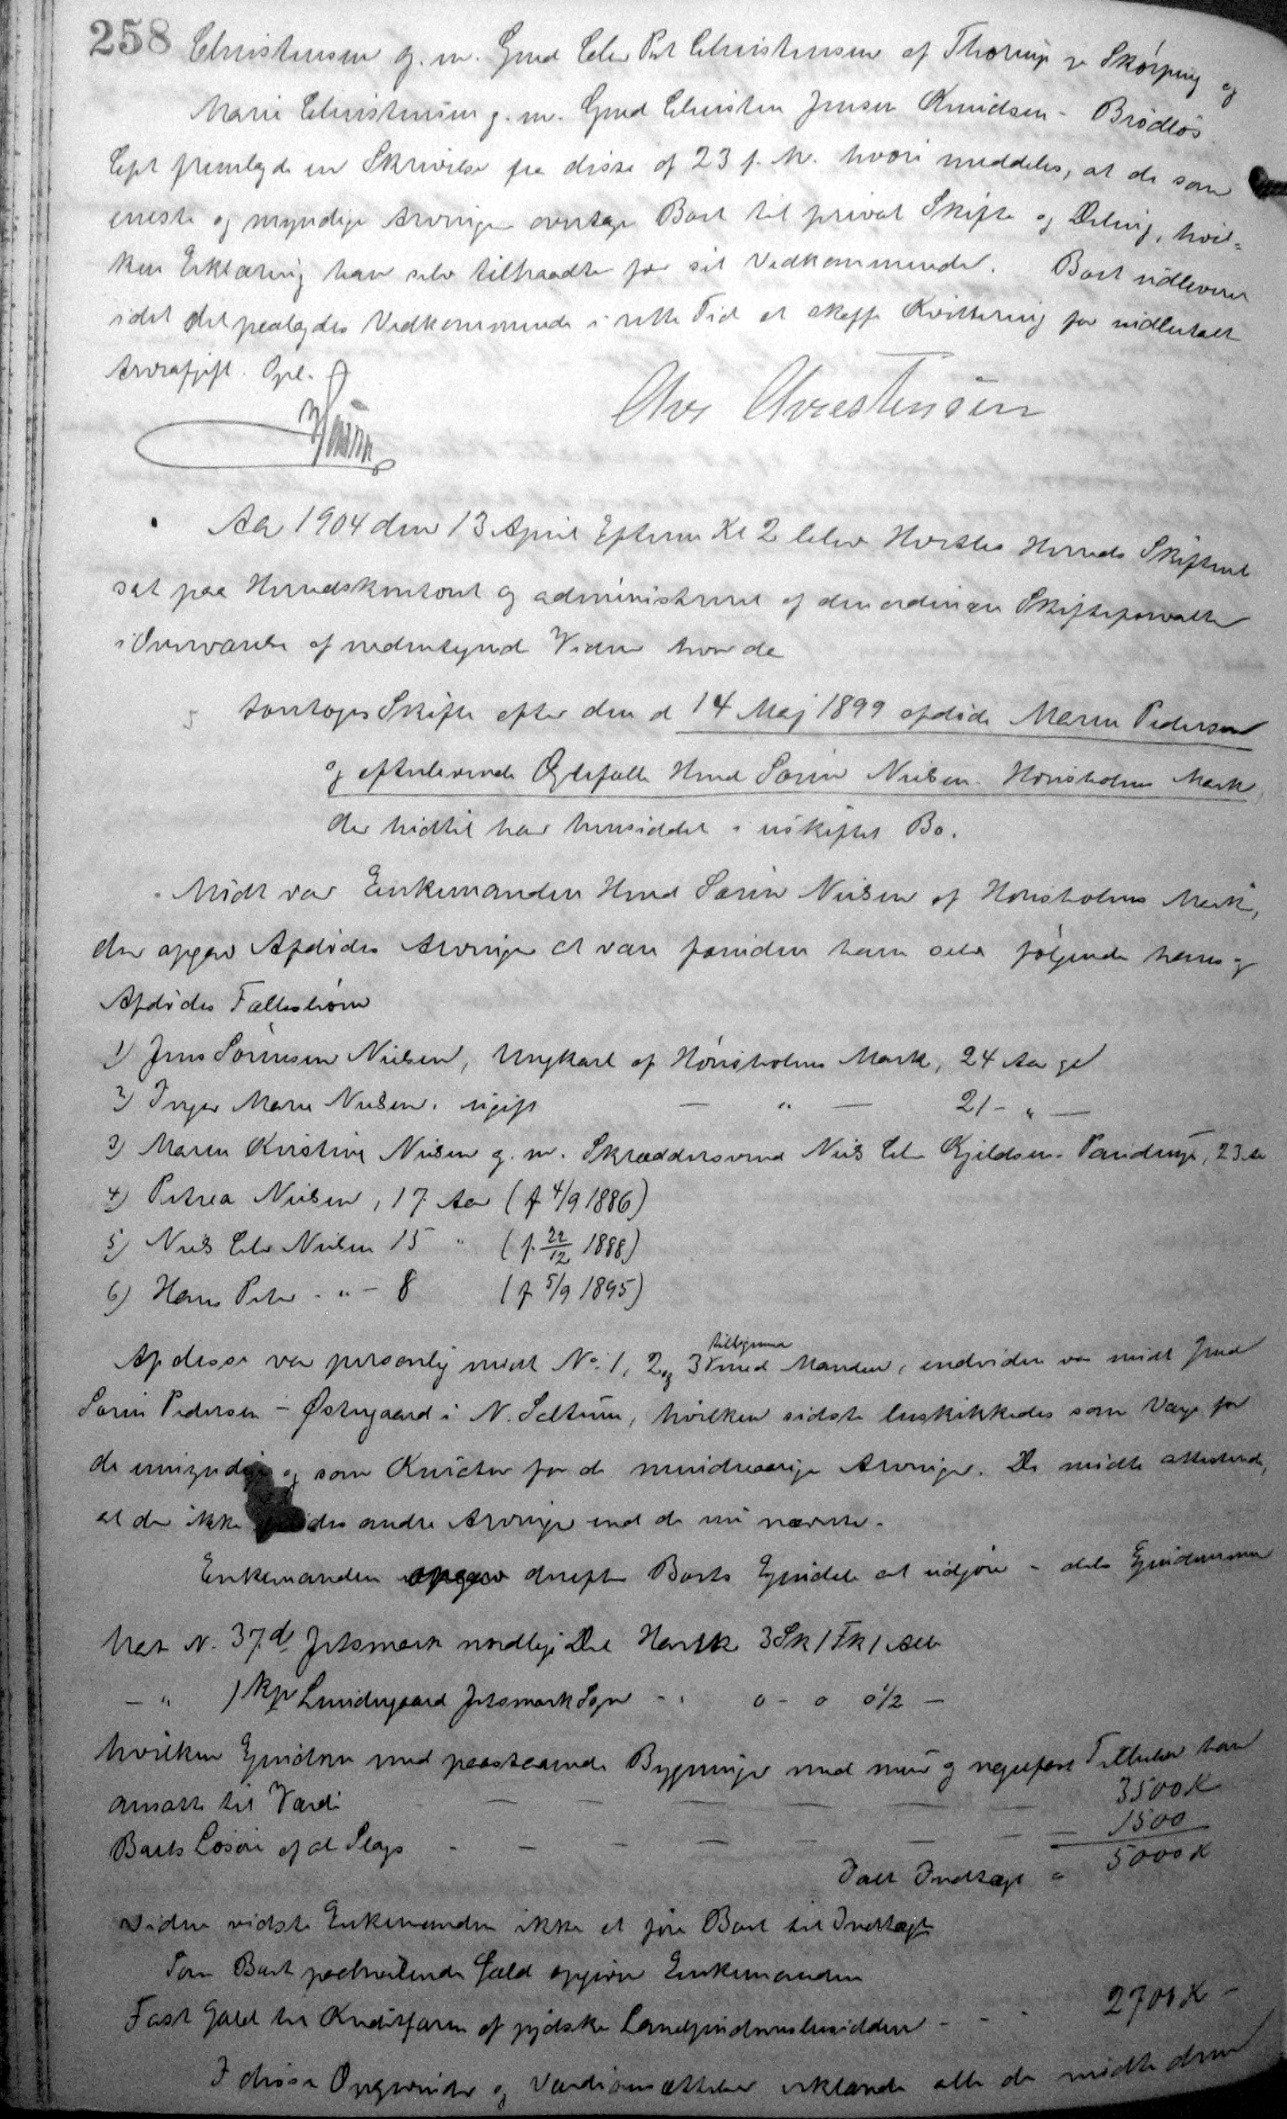 258
Christensen g. m. Gmd Chr Peter Christensen af Thorup pr Skørping og
Marie Christensen g. m. Gmd Christen Jensen Knudsen - Brødløs
Cpt fremlagde en Skrivelse fra disse af 23 f. M. hvori meddeles, at de som
eneste og myndige Arvinger overtage Boet til privat Skifte og Deling, hvil-
ken Erklæring han selv tiltraadte for sit Vedkommende. Boet udleveret
idet det paalagdes Vedkommende i rette Tid at skaffe Kvittering for indbetalt
Arveafgift. Opl.
Chr Chrestensen
Aar 1904 den 13 April Efterm Kl 2 blev Hvetbo Herreds Skifteret
sat paa Herredskontoret og administreret af den ordinære Skifteforvalter
i Overværelse af nedentegnede Vidner hvorda
5 foretoges Skifte efter den d 14 Maj 1899 afdøde Maren Pedersen
og efterlevende Ægtefælle Hmd Søren Nielsen Hønsholms Mark,
der hidtil har hensiddet i uskiftet Bo.
Mødt var Enkemanden Hmd Søren Nielsen af Hønsholms Mark,
der opgav Afdødes Arvinger at være foruden ham selv følgende hans og
Afdødes Fællesbørn
1) Jens Sørensen Nielsen, Ungkarl af Hønsholms Mark, 24 Aar gl
2) Inger Marie Nielsen, ugift — " — 21 - " —
3) Maren Kirstine Nielsen g. m. Skræddersvend Niels Chr Kjeldsen - Pandrup, 23 Aar
4) Petrea Nielsen, 17 Aar (f 4/9 1886)
5) Niels Chr Nielsen 15 " (f. 22/12 1888)
6) Hans Peter - " - 8 (f 5/9 1895)
Af disse var personlig mødt No 1, 2 og 3 tilligemed Manden, endvidere var mødt Gmd
Søren Pedersen - Østergaard i N. Saltum, hvilken sidste beskikkedes som Værge for
de umyndige og som Kurator for de mindreaarige Arvinger. De mødte attesterede,
at der ikke andre Arvinger end de nu nævnte.
Enkemanden opgav derefter Boets Ejendele at udgjøre - dels Ejendommen
Matr N. 37d Jetsmark nordlige Del Hartk 3 Sk 1 Fk 1 Alb
— " 1kp Lundergaard Jetsmark Sogn - " 0 - 0 0 1/2 —
hvilken Ejendom med paastaaende Bygninger med mur og nagelfast Tilbehør han
ansatte til Værdi — — — — — — 3500 K
Boets Løsøre af al Slags - — — — — — 1500
Ialt Indtægt = 5000 K
Videre vidste Enkemanden ikke at føre Boet til Indtægt
Som Boet paahvilende Gæld opgiver Enkemanden
Fast Gæld til Kreditforen af jydske Landejendomsbesiddere - - 2700 K -
I disse Opgivender og Værdiansættelser erklærede alle de mødte dem